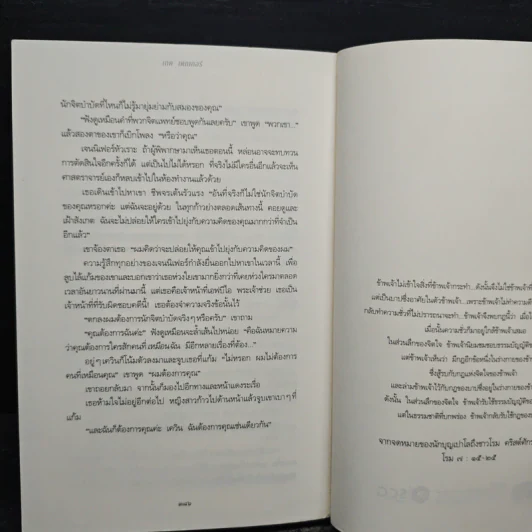 นักจิตบำบัดที่ไหนก็ไม่รู้มายุ่มย่ามกับสมองของคุณ”
“ฟังดูเหมือนคำที่พวกจิตแพทย์ชอบพูดกันเลยครับ” เขาพูด “พวกเขา...”
แล้วสองตาของเขาก็เบิกโพลง “หรือว่าคุณ”
เจนนิเฟอร์หัวเราะ ถ้าผู้พิพากษามาเห็นเธอตอนนี้ หล่อนอาจจะทบทวน
การตัดสินใจอีกครั้งก็ได้ แต่เป็นไปไม่ได้หรอก ที่จริงไม่มีใครอื่นอีกแล้วจะเห็น
ศาสตราจารย์เองก็กลบเข้าไปในห้องทำงานแล้วด้วย
เธอเดินเข้าไปหาเขา ชีพจรเต้นรัวแรง “อันที่จริงก็ไม่ใช่นักจิตบำบัด
ของคุณหรอกค่ะ แต่ฉันจะอยู่ด้วย ในทุกก้าวย่างตลอดเส้นทางนี้ คอยดูและ
เฝ้าสังเกต ฉันจะไม่ปล่อยให้ใครเข้าไปยุ่งกับความคิดของคุณมากกว่าที่จำเป็น
อีกแล้ว”
เขาจ้องตาเธอ “ผมคิดว่าจะปล่อยให้คุณเข้าไปยุ่งกับความคิดของผม”
ความรู้สึกทุกอย่างของเจนนิเฟอร์กำลังยื่นออกไปหาเขาในเวลานี้ เพื่อ
ลูบไล้แก้มของเขาและบอกเขาว่าเธอห่วงใยเขามากยิ่งกว่าที่เคยห่วงใครมาตลอด
เวลาอันยาวนานที่ผ่านมานี้ แต่เธอคือเจ้าหน้าที่เอฟบีไอ พระเจ้าช่วย เธอเป็น
เจ้าหน้าที่ที่รับผิดชอบคดีนี้! เธอต้องจำความจริงข้อนั้นไว้
“ตกลงผมต้องการนักจิตบำบัดจริงๆ หรือครับ” เขาถาม
“คุณต้องการฉันค่ะ” ฟังดูเหมือนจะล้ำเส้นไปหน่อย “คือฉันหมายความ
ว่าคุณต้องการใครสักคนที่เหมือนฉัน มีอีกหลายเรื่องที่ต้อง...”
อยู่ๆ เควินก็โน้มตัวลงมาและจูบเธอที่แก้ม “ไม่หรอก ผมไม่ต้องการ
คนที่เหมือนคุณ” เขาพูด “ผมต้องการคุณ”
เขาถอยกลับมา จากนั้นก็มองไปอีกทางและหน้าแดงระเรื่อ
เธอห้ามใจไม่อยู่อีกต่อไป หญิงสาวก้าวไปด้านหน้าแล้วจูบเขาเบาๆ ที่
แก้ม
“และฉันก็ต้องการคุณค่ะ เควิน ฉันต้องการคุณเช่นเดียวกัน”
ข้าพเจ้าไม่เข้าใจสิ่งที่ข้าพเจ้ากระทำ...ดังนั้นจึงไม่ใช่ข้าพเจ้า
แต่เป็นบาปซึ่งอาศัยในตัวข้าพเจ้า...เพราะข้าพเจ้าไม่ทำความดี
กลับทำความชั่วที่ไม่ปรารถนาจะทำ ข้าพเจ้าจึงพบกฎนี้ว่า เมื่อ
เมื่อนั้นความชั่วก็มาอยู่ใกล้ข้าพเจ้าเสมอ
ในส่วนลึกของจิตใจ ข้าพเจ้านิยมชมชอบธรรมบัญญัติของ
แต่ข้าพเจ้าเห็นว่า มีกฎอีกข้อหนึ่งในร่างกายของข้า
ซึ่งสู้รบกับกฎแห่งจิตใจของข้าพเจ้า
และล่ามข้าพเจ้าไว้กับกฎของบาปซึ่งอยู่ในร่างกายของข้า
ดังนั้น ในส่วนลึกของจิตใจ ข้าพเจ้ารับใช้ธรรมบัญญัติ
แต่ในธรรมชาติที่บกพร่อง ข้าพเจ้ากลับรับใช้กฎของ
จากจดหมายของนักบุญเปาโลถึงชาวโรม คริสต์ศัก
โรม ๗ : ๑๕-๒๕